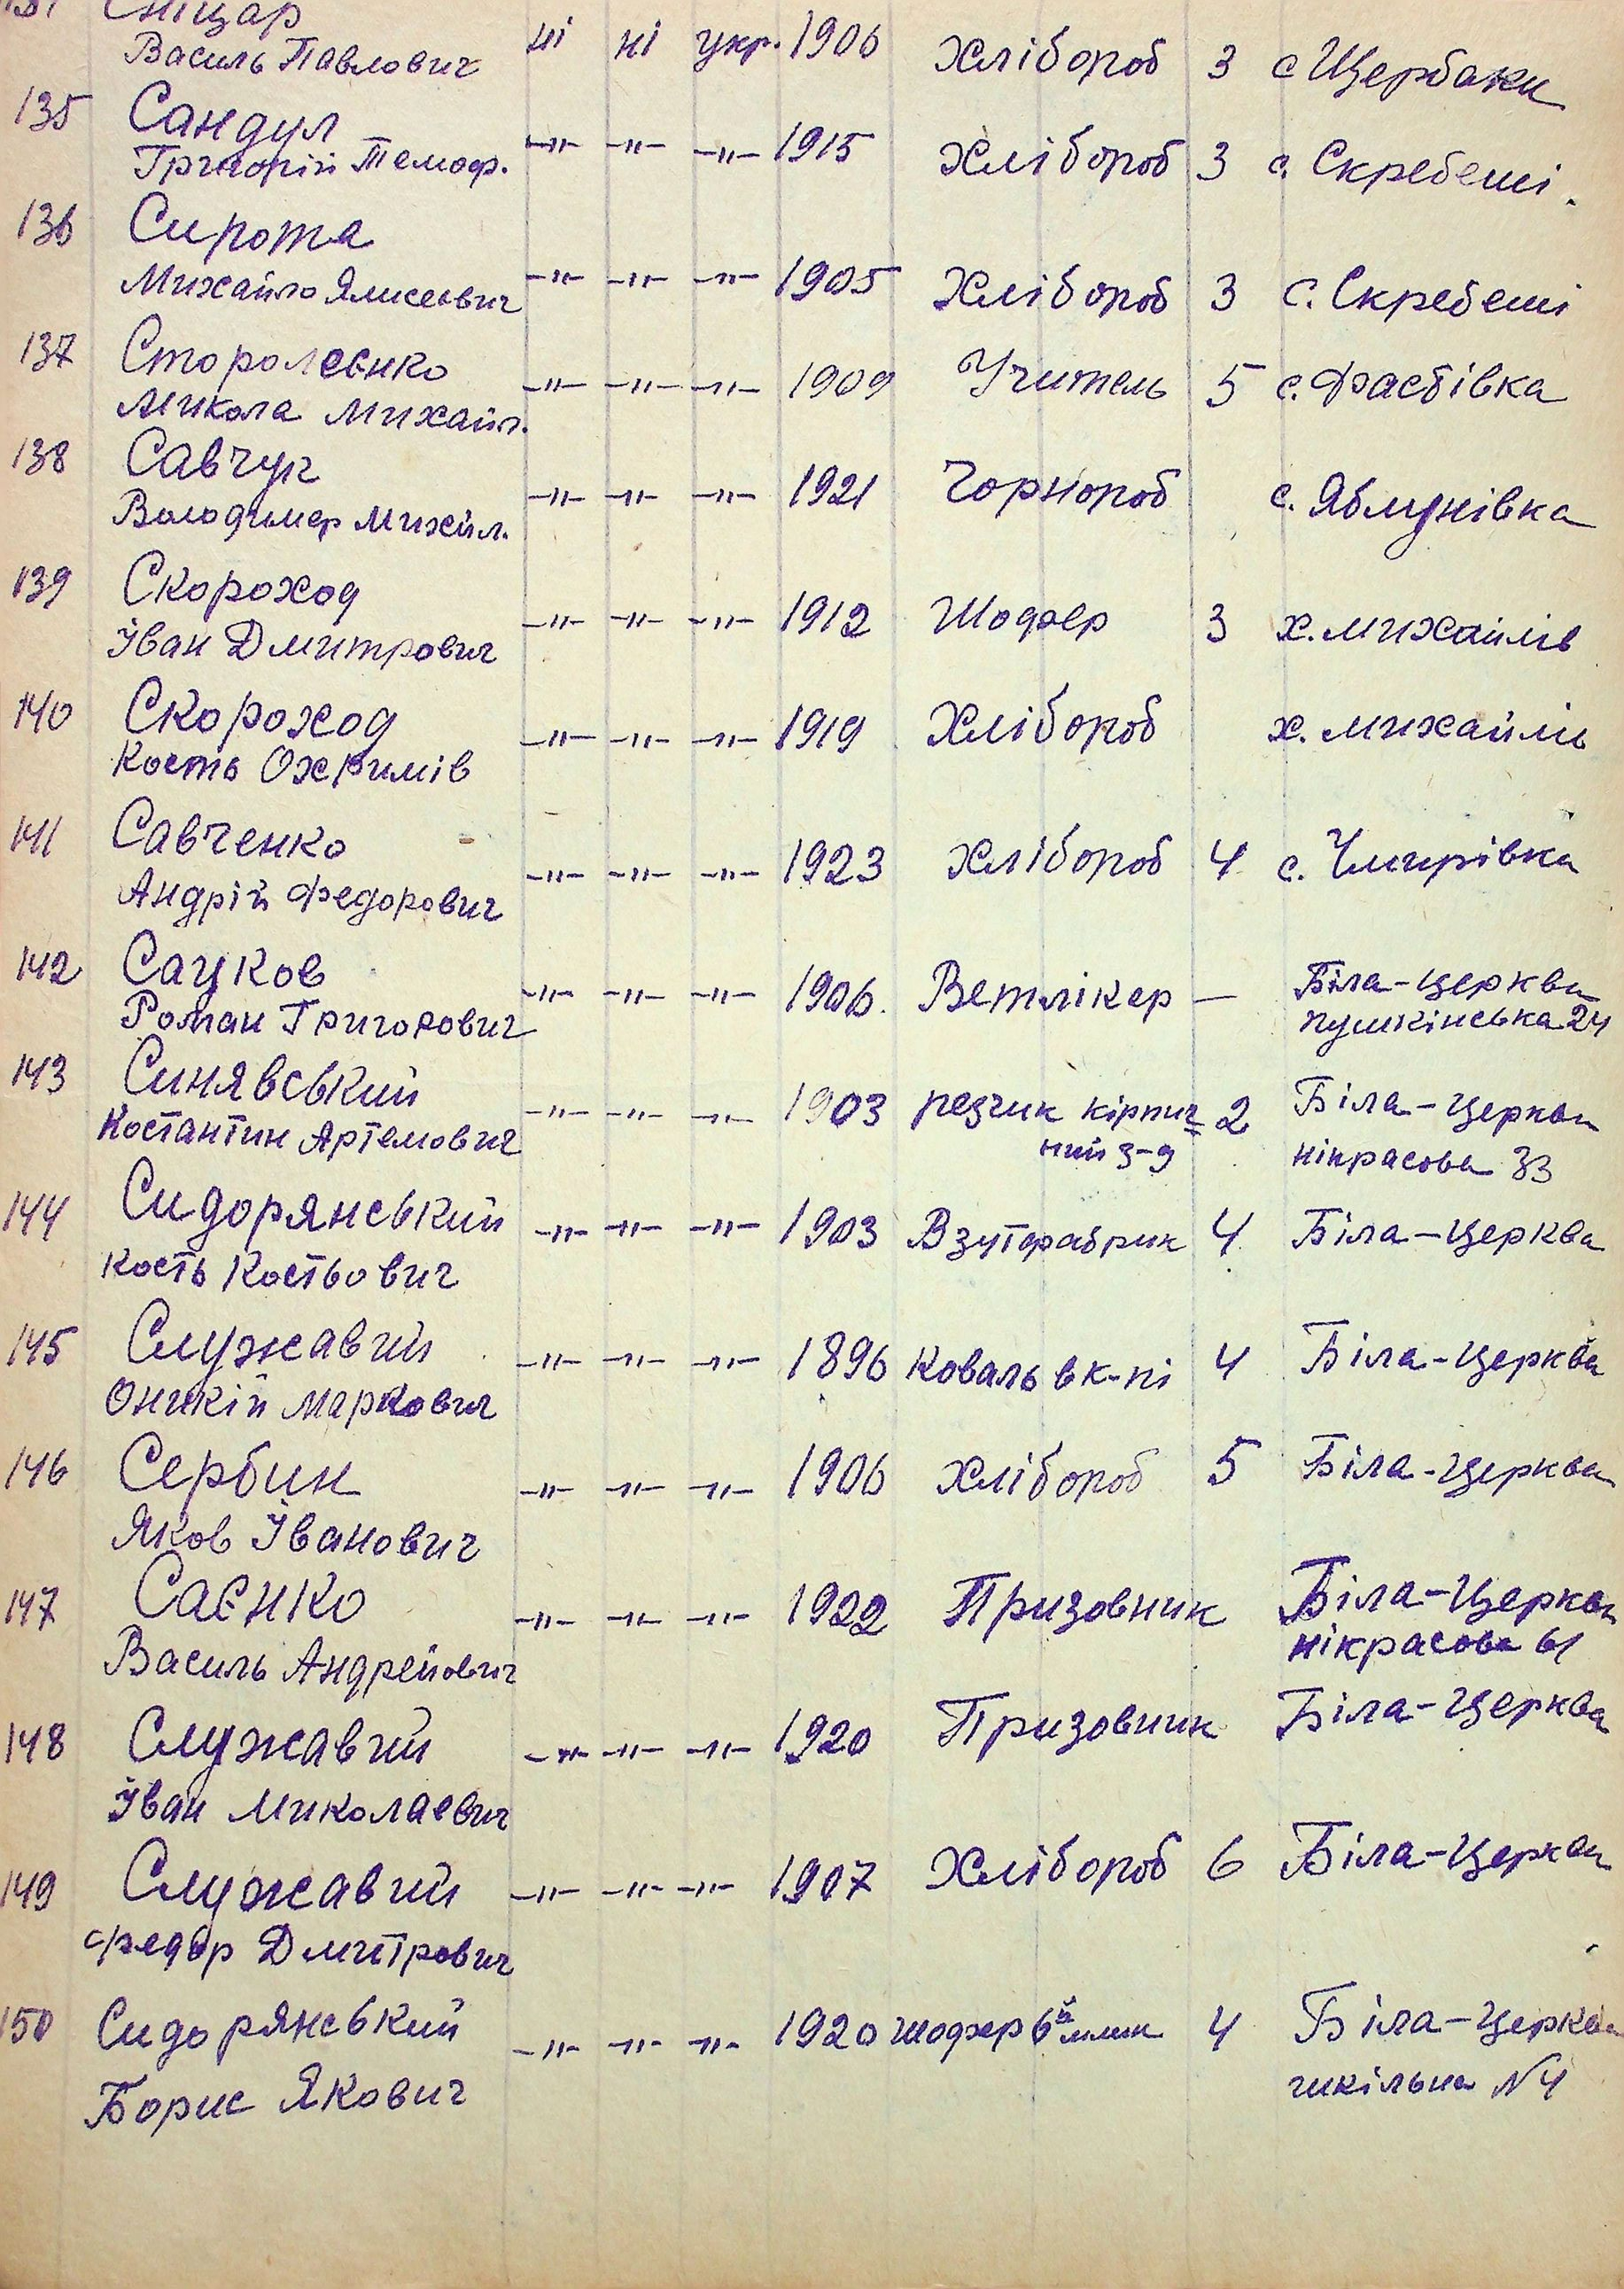 Сніцар ні ні укр. 1906 Хлібороб 3 с Щербаки
Василь Павлович
135 Сандул -"- -"- -"- 1915 Хлібороб 3 с. Скребеші.
Григорій Темоф.
136 Сирота -"- -"- -"- 1905 Хлібороб 3 с. Скребеші
Михайло Ялисеєвич
137 -"- -"- -"- 1909 Учитель 5 с. Фастівка
Микола Михайл.
138 Савчук -"- -"- -"- 1921 Чорнороб с. Яблунівка
Володимер Михайл.
139 Скороход -"- -"- -"- 1912 Шофер 3 х. Михайлів
Їван Дмитрович
140 Скороход -"- -"- -"- 1919 Хлібороб х. Михайлів
Кость Охримів
141 Савченко -"- -"- -"- 1923 Хлібороб 4 с. Чмирівка
Андрій Федорович
142 Сацков -"- -"- -"- 1906. Ветлікер — Біла-Церква
Роман Григорович пушкінська 24
143 Синявський -"- -"- -"- 1903 резчик кірпич= 2 Біла-Церква
Костантин Артемович ний з-д нікрасова 33
144 Сидорянський -"- -"- -"- 1903 Взутфабрик 4 Біла-Церква
Кость Костьович
145 Служавий -"- -"- -"- 1896 Коваль в к-пі 4 Біла-Церква
Оникій Маркович
146 Сербин -"- -"- -"- 1906 Хлібороб 5 Біла-Церква
Яков Їванович
147 Саєнко -"- -"- -"- 1922 Призовник Біла-Церква
Василь Андрейович нікрасова 61
148 Служавий -"- -"- -"- 1920 Призовник Біла-Церква
Їван Миколаевич
149 Служавий -"- -"- -"- 1907 Хлібороб 6 Біла-Церква
Федор Дмитрович
150 Сидорянський -"- -"- -"- 1920 шофер 6й млин 4 Біла-Церква
Борис Якович шкільна N4